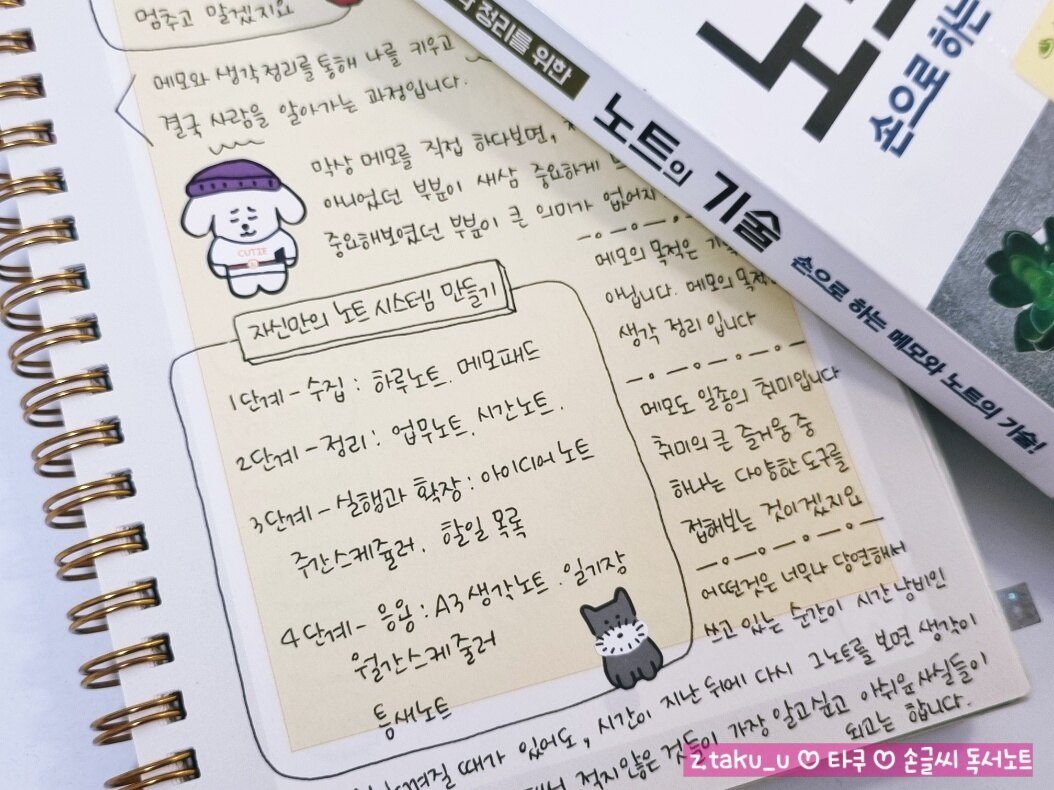 멈추고 말겠지요
메모와 생각정리를 통해 나를 키우고
결국 사람을 알아가는 과정입니다.
막상 메모를 직접 하다보면,
아니었던 부분이 새삼 중요하게
중요해보였던 부분이 큰 의미가 없어지
CUTIE
자신만의 노트 시스템 만들기
1단계 - 수집 : 하루노트. 메모패드
2단계 - 정리 : 업무노트. 시간노트.
3단계 - 실행과 확장 : 아이디어 노트
주간스케쥴러. 할일 목록
4단계 - 응용 : A3 생각노트. 일기장
월간스케쥴러
틈새노트
메모의 목적은
아닙니다. 메모의 목적
생각 정리 입니다
메모도 일종의 취미입니다
취미의 큰 즐거움 중
하나는 다양한 도구를
접해보는 것이겠지요
어떤것은 너무나 당연해서
쓰고 있는 순간이 시간낭비인
때가 있어도, 시간이 지난 뒤에 다시 그노트를 보면 생각이
적지않은 것들이 가장 알고싶고 아쉬운 사실들이
되고는 합니다.
정리를 위한
노트의 기술
손으로 하는 메모와 노트의 기술!
노트
손으로 하는
z.taku_u ♡ 타쿠 ♡ 손글씨 독서노트